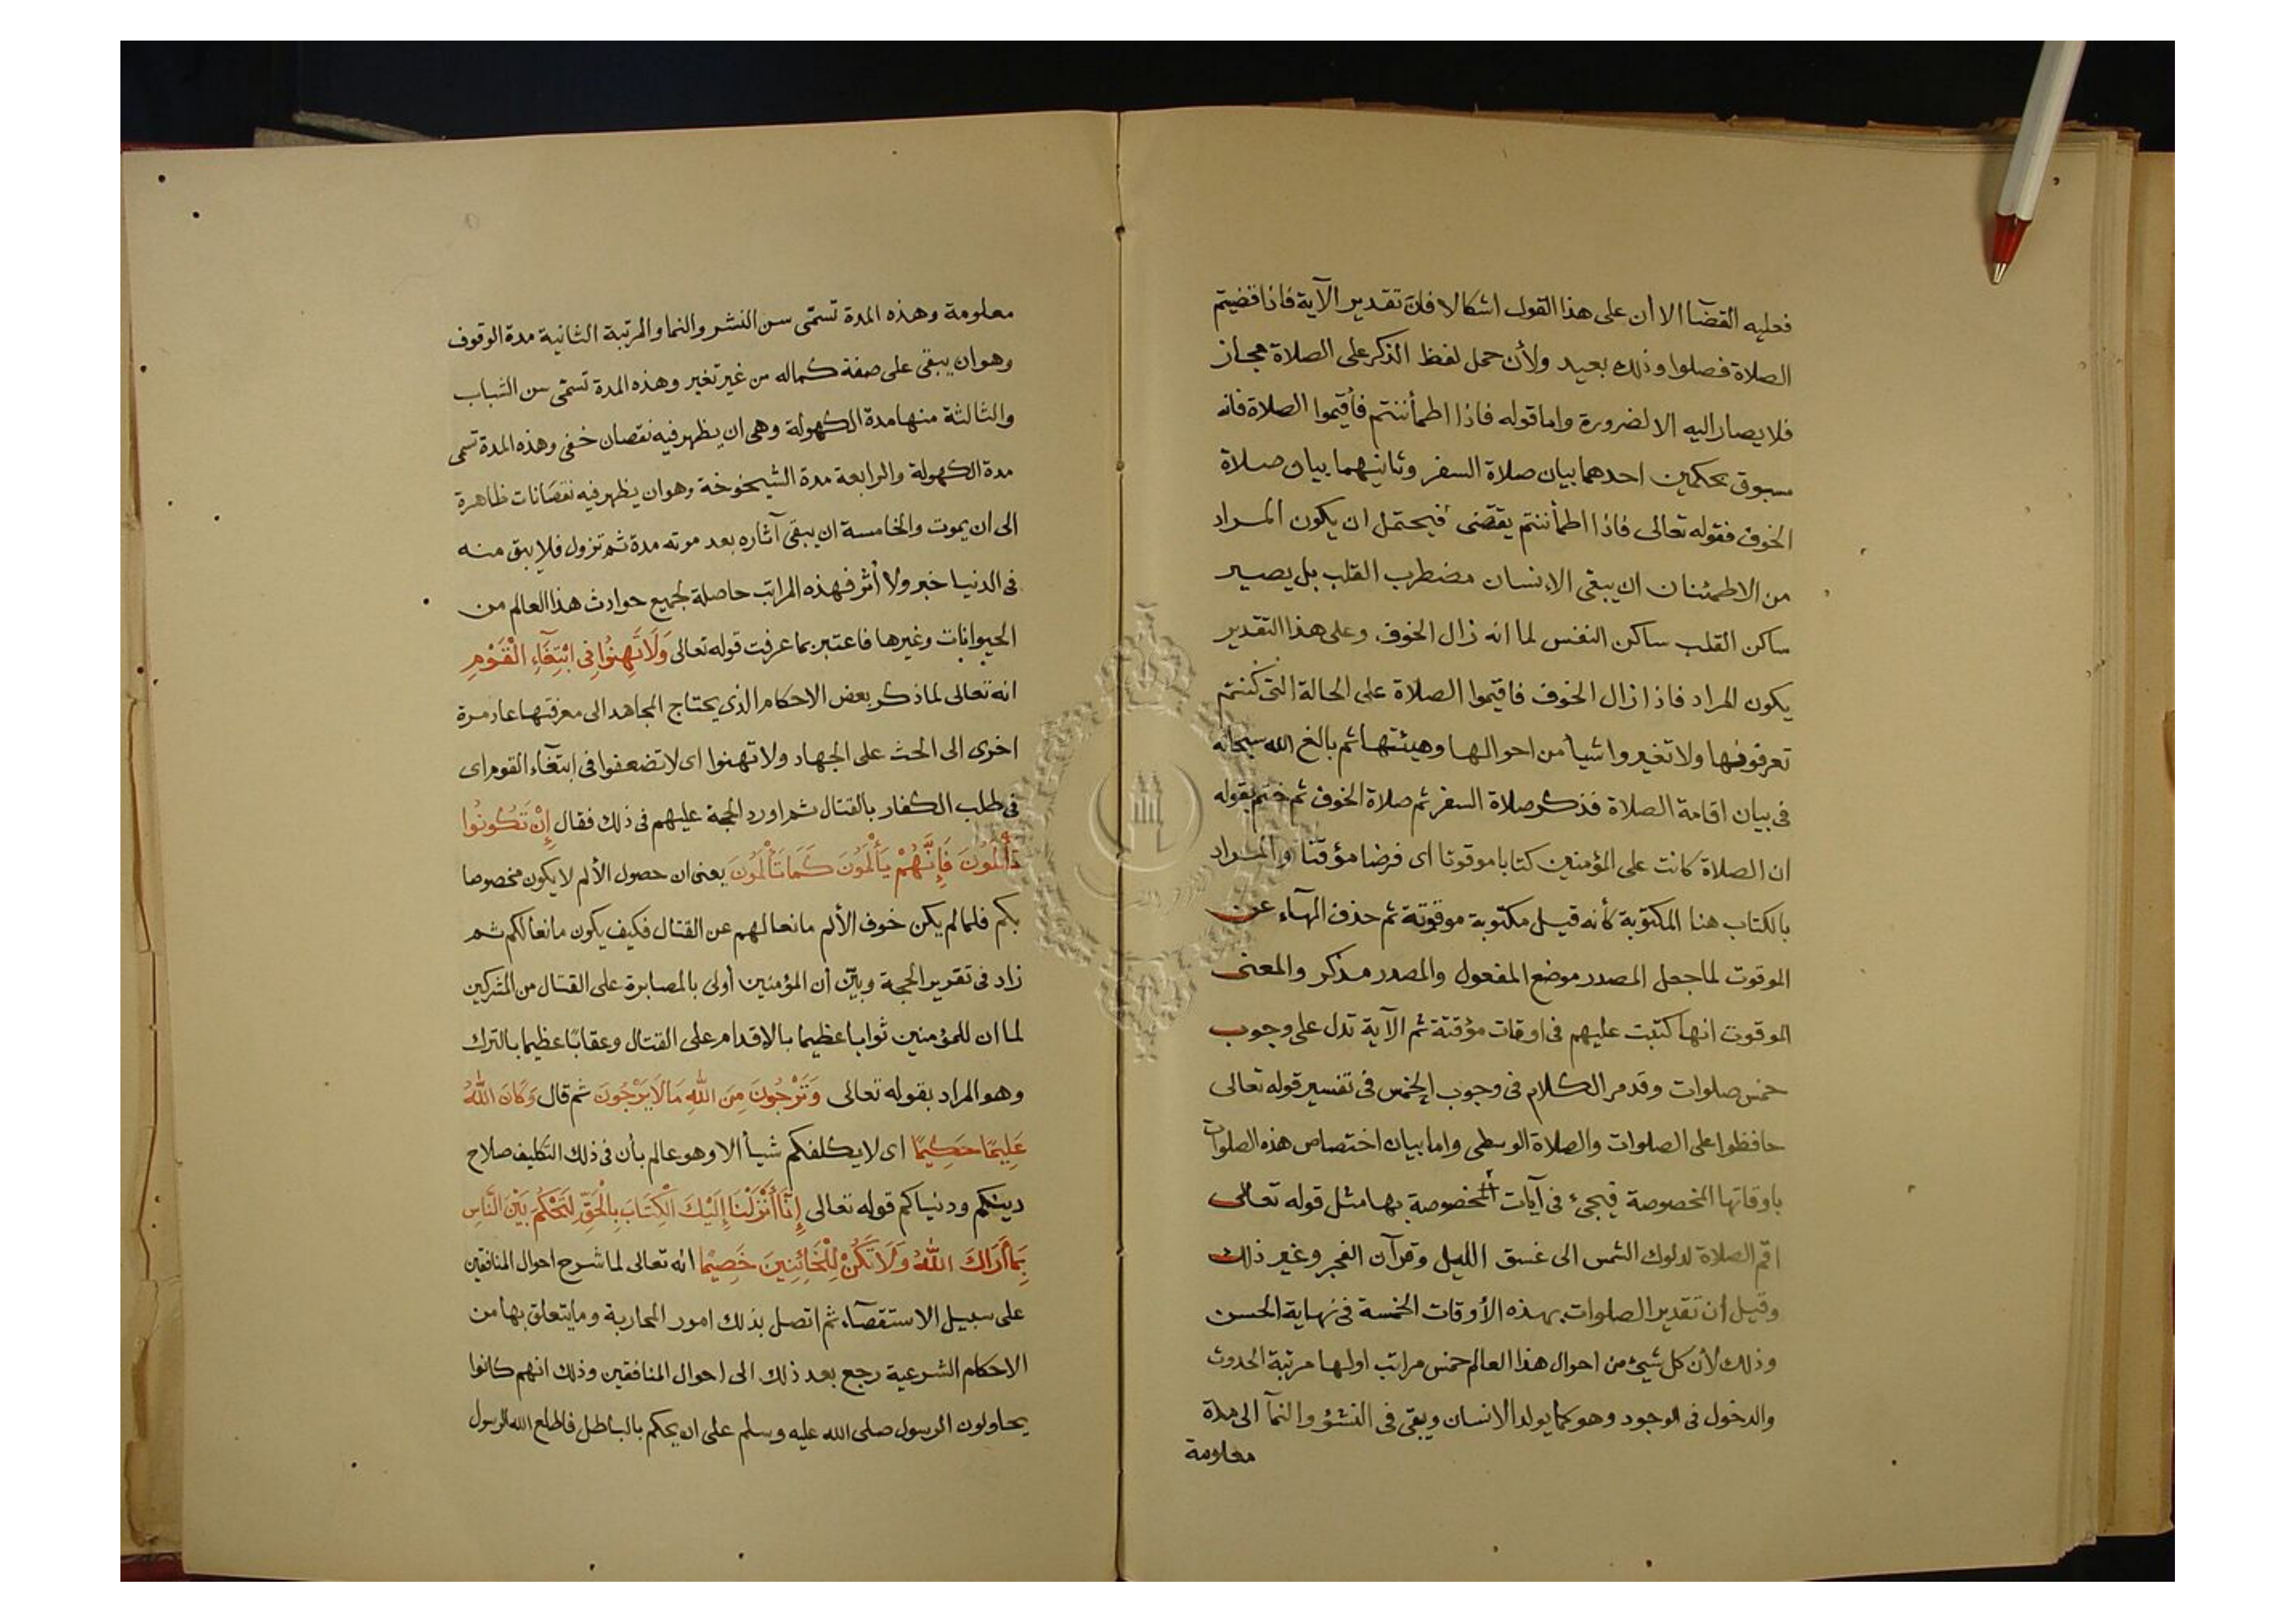 فعليه القضآ الا أن على هذا القول اشكالا فان تقدير الآية فاذا قضيتم
الصلاة فصلوا وذلك بعيد ولأن حمل لفظ الذكر على الصلاة مجاز
فلا يصار اليه الا لضرورة واما قوله فاذا اطمأننتم فأقيموا الصلاة فانه
مسبوق بحكمين احدهما بيان صلاة السفر وثانيهما بيان صلاة
الخوف فقوله تعالى فاذا اطمأننتم يقتضى فيحتمل ان يكون المراد
من الاطمئنان ان يبقى الانسان مضطرب القلب بل يصير
ساكن القلب ساكن النفس لما انه زال الخوف وعلى هذا التقدير
يكون المراد فاذا زال الخوف فاقيموا الصلاة على الحالة التى كنتم
تعرفونها ولا تغيروا شيأ من احوالها وهيئتها ثم بالغ الله سبحانه
فى بيان اقامة الصلاة فذكر صلاة السفر ثم صلاة الخوف ثم ختم بقوله
ان الصلاة كانت على المؤمنين كتابا موقوتا اى فرضا مؤقتا والمراد
بالكتاب هنا المكتوبة كأنه قيل مكتوبة موقوتة ثم حذف الهآء عن
الموقوت لما جعل المصدر موضع المفعول والمصدر مذكر والمعنى
الموقوت انها كتبت عليهم فى اوقات مؤقتة ثم الآية تدل على وجوب
خمس صلوات وقد مر الكلام فى وجوب الخمس فى تفسير قوله تعالى
حافظوا على الصلوات والصلاة الوسطى واما بيان اختصاص هذه الصلوات
باوقاتها المخصوصة فيجىء فى آيات المخصوصة بها مثل قوله تعالى
اقم الصلاة لدلوك الشمس الى غسق الليل وقرآن الفجر وغير ذلك
وقيل أن تقدير الصلوات بهذه الأوقات الخمسة فى نهاية الحسن
وذلك لأن كل شىء من احوال هذا العالم خمس مراتب اولها مرتبة الحدوث
والدخول فى الوجود وهو كما يولد الانسان ويبقى فى النشؤ والنمآ الى مدة
معلومة
معلومة وهذه المدة تسمّى سن النشر والنما والمرتبة الثانية مدة الوقوف
وهو ان يبقى على صفة كماله من غير تغير وهذه المدة تسمّى سن الشباب
والثالثة منها مدة الكهولة وهى ان يظهر فيه نقصان خفى وهذه المدة تسمى
مدة الكهولة والرابعة مدة الشيخوخة وهو ان يظهر فيه نقصانات ظاهرة
الى ان يموت والخامسة ان يبقى آثاره بعد موته مدة ثم تزول فلا يبق منه
فى الدنيا خبر ولا أثر فهذه المراتب حاصلة لجميع حوادث هذا العالم من
الحيوانات وغيرها فاعتبر بما عرفت قوله تعالى وَلَا تَهِنُوا فِى ابْتِغَآءِ الْقَوْمِ
انه تعالى لما ذكر بعض الاحكام الذى يحتاج المجاهد الى معرفتها عاد مرة
اخرى الى الحث على الجهاد ولا تهنوا اى لا تضعفوا فى ابتغآء القوم اى
فى طلب الكفار بالقتال ثم اورد الحجة عليهم فى ذلك فقال إِنْ تَكُونُوا
تَأْلَمُونَ فَإِنَّهُمْ يَأْلَمُونَ كَمَا تَأْلَمُونَ يعنى ان حصول الألم لا يكون مخصوصا
بكم فلما لم يكن خوف الألم مانعا لهم عن القتال فكيف يكون مانعا لكم ثم
زاد فى تقرير الحجة وبيّن أن المؤمنين أولى بالمصابرة على القتال من المشركين
لما ان للمؤمنين ثوابا عظيما بالاقدام على القتال وعقابًا عظيما بالترك
وهو المراد بقوله تعالى وَتَرْجُونَ مِنَ اللهِ مَا لَا يَرْجُونَ ثم قال وَكَانَ اللهُ
عَلِيمًا حَكِيمًا اى لا يكلفكم شيأ الا وهو عالم بأن فى ذلك التكليف صلاح
دينكم ودنياكم قوله تعالى إِنَّا أَنْزَلْنَا إِلَيْكَ الْكِتَابَ بِالْحَقِّ لِتَحْكُمَ بَيْنَ النَّاسِ
بِمَا أَرَاكَ اللهُ وَلَا تَكُنْ لِلْخَائِنِينَ خَصِيمًا انه تعالى لما شرح احوال المنافقين
على سبيل الاستقصآء ثم اتصل بذلك امور المحاربة وما يتعلق بها من
الاحكام الشرعية رجع بعد ذلك الى احوال المنافقين وذلك انهم كانوا
يحاولون الرسول صلى الله عليه وسلم على ان يحكم بالباطل فاطلع الله الرسول